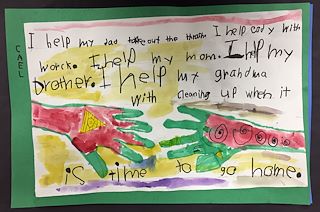 I help my dad take out the trash. I help cody with
worck. I help my mom. I help my
brother. I help my grandma
with cleaning up when it
is time to go home.
CAEL